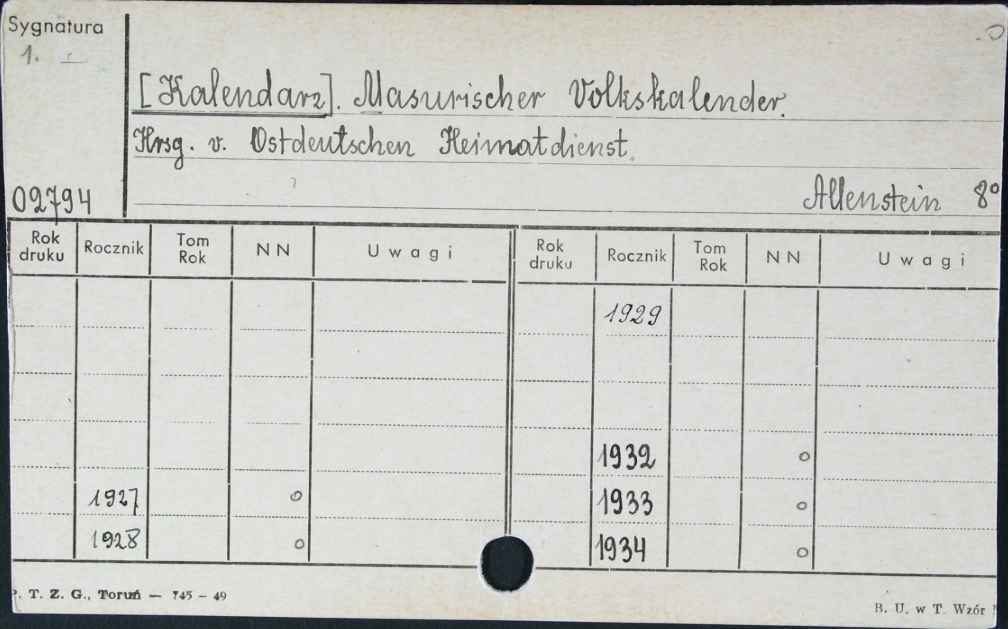 Sygnatura
1.
[Kalendarz]. Masurischer Volkskalender.
Hrsg. v. Ostdeutschen Heimatdienst.
02794 Allenstein 8°
Rok druku Rocznik Tom Rok NN Uwagi Rok druku Rocznik Tom Rok NN Uwagi
1929
1932 o
1927 o 1933 o
1928 o 1934 o
. T. Z. G., Toruń — 745 – 49
B. U. w T. Wzór